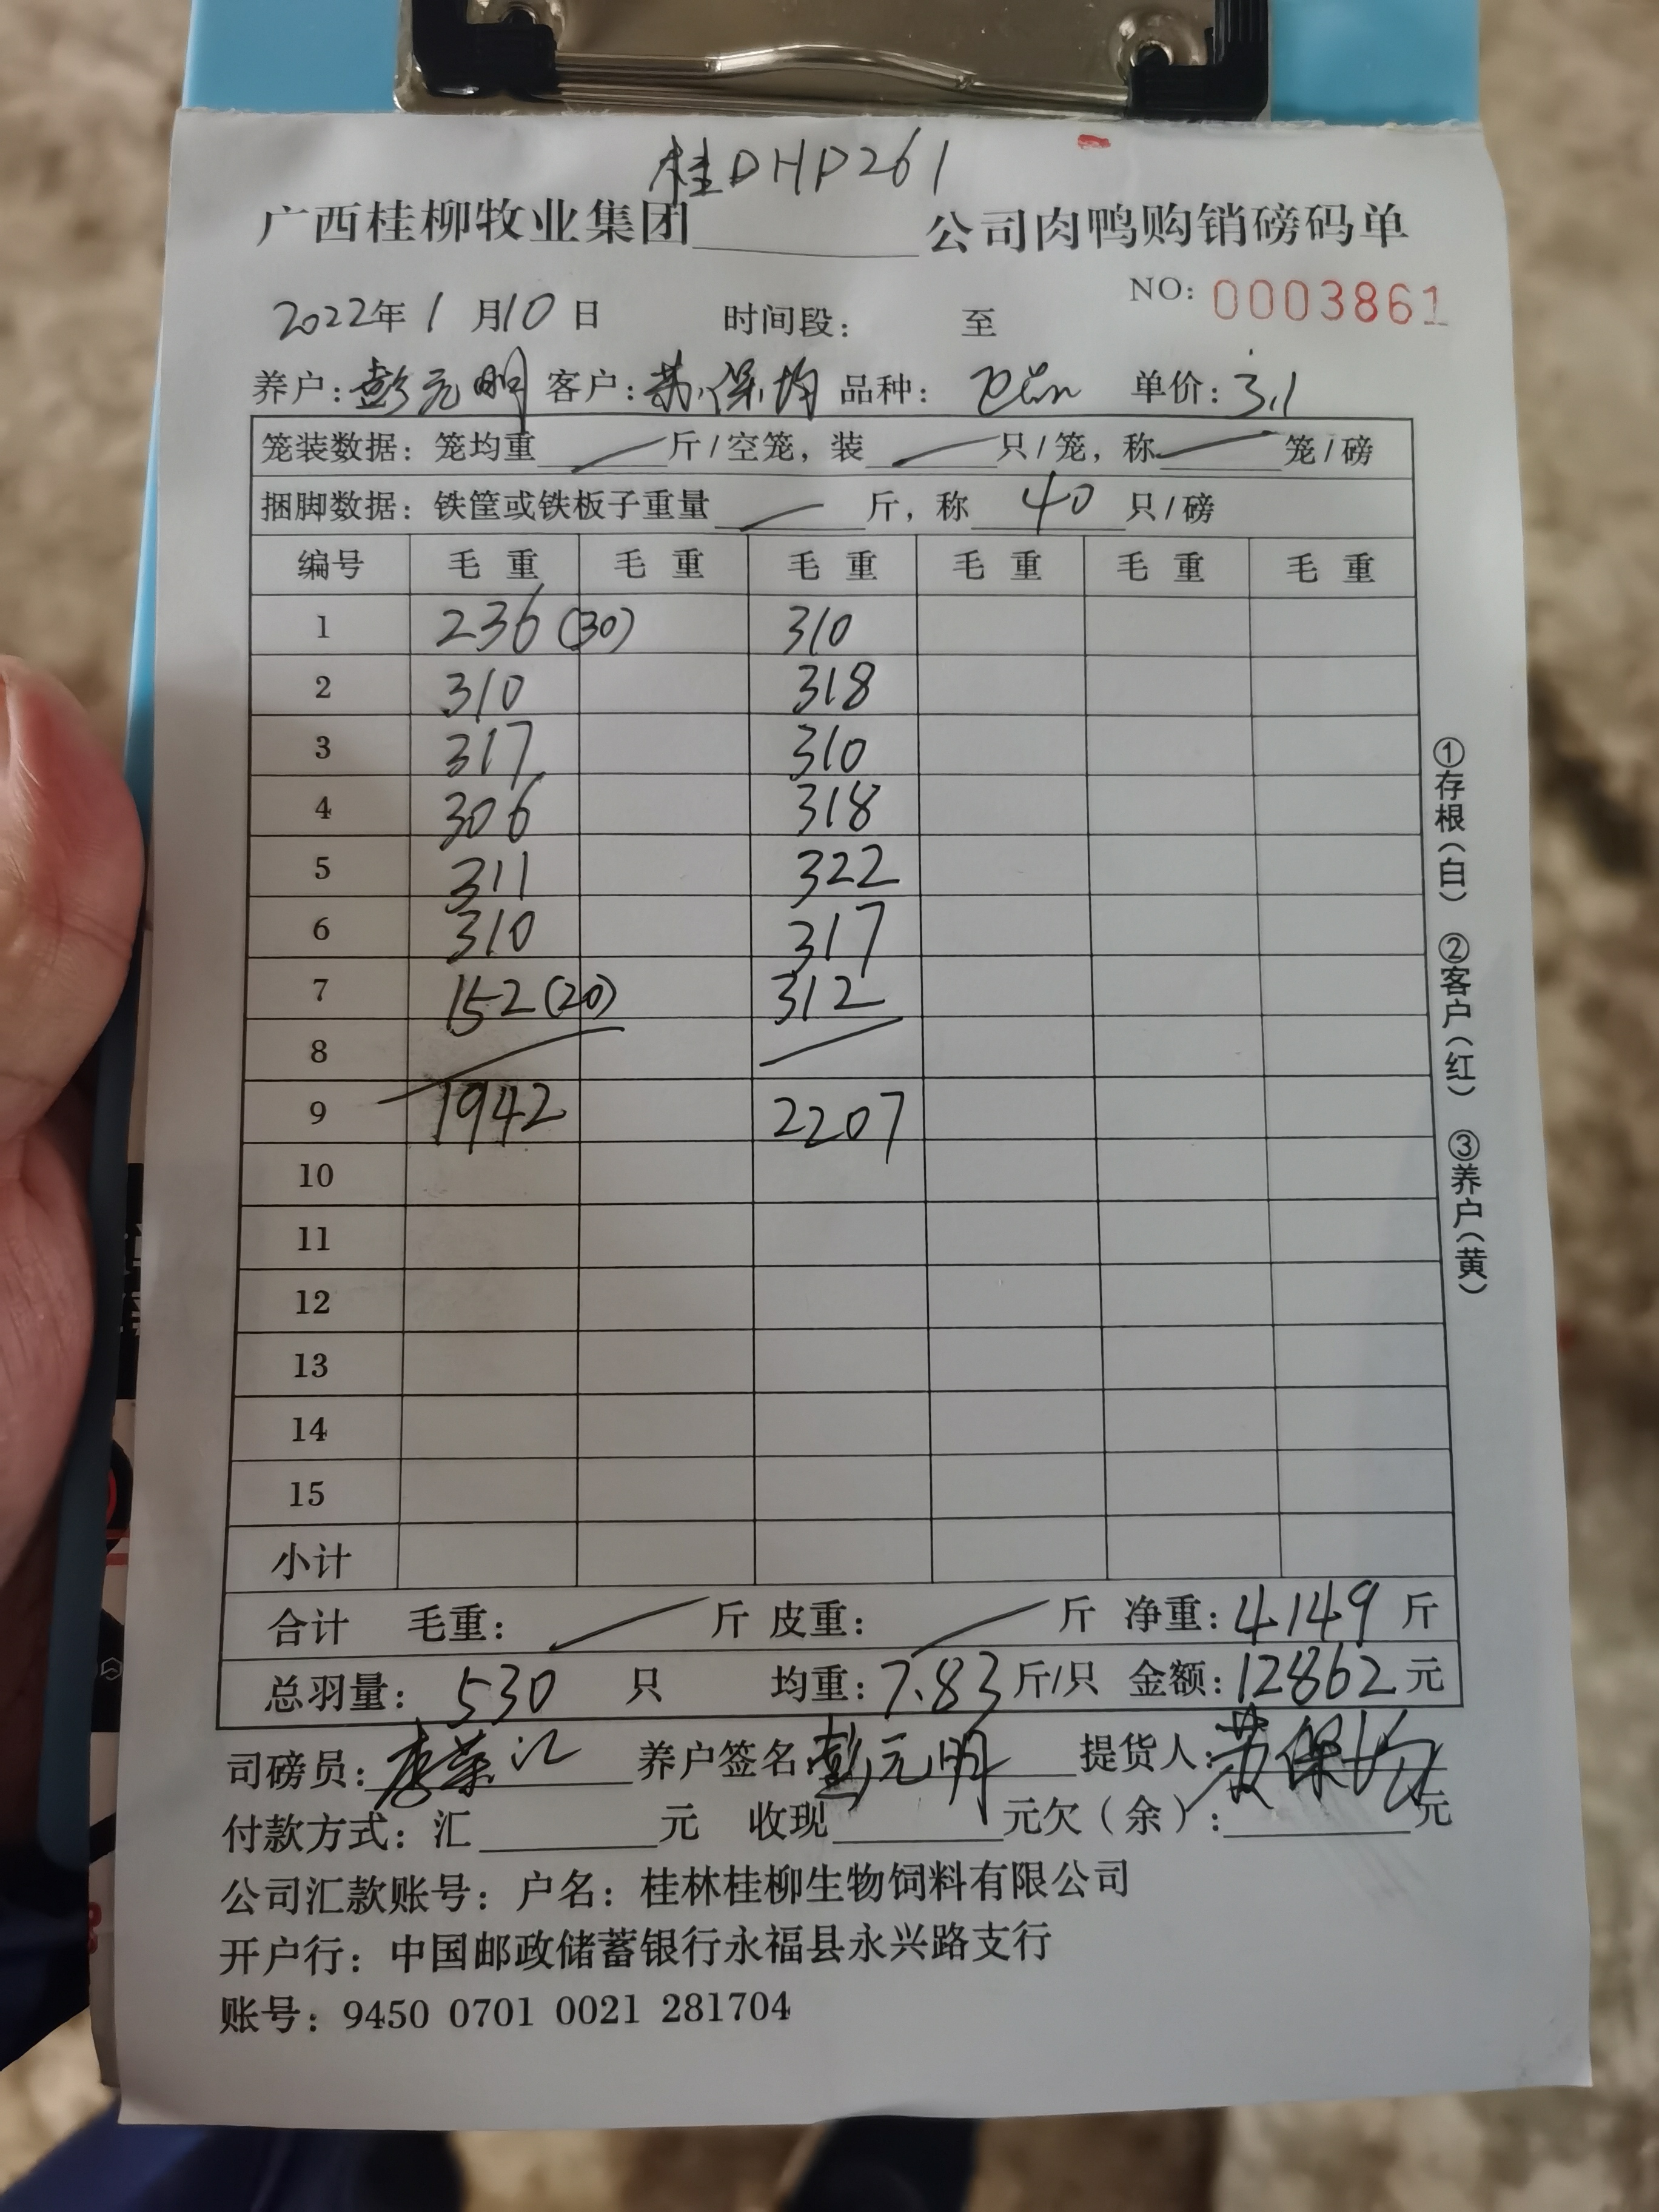 桂DHP261
广西桂柳牧业集团 公司肉鸭购销磅码单
NO: 0003861
2022年1月10日 时间段： 至
养户：彭元明 客户：苏保均 品种： 单价：3.1
笼装数据：笼均重 斤/空笼，装 只/笼，称 笼/磅
捆脚数据：铁筐或铁板子重量 斤，称 40 只/磅
编号 毛重 毛重 毛重 毛重 毛重 毛重
1 236(30) 310
2 310 318
3 317 310
4 306 318
5 311 322
6 310 317
7 152(20) 312
8
9 1942 2207
10
11
12
13
14
15
小计
合计 毛重： 斤 皮重： 斤 净重：4149 斤
总羽量：530 只 均重：7.83斤/只 金额：12862元
司磅员： 养户签名 彭元明 提货人：苏保均
付款方式：汇 元 收现 元欠（余）： 元
公司汇款账号：户名：桂林桂柳生物饲料有限公司
开户行：中国邮政储蓄银行永福县永兴路支行
账号：9450 0701 0021 281704
①存根（白） ②客户（红） ③养户（黄）